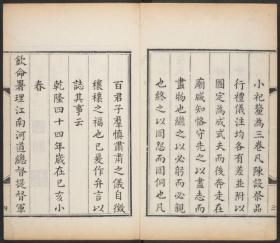 小祀釐為三卷凡陳設祭品
行禮儀注均各有差並附以
圖定為成式夫而後奔走在
廟咸知恪守先之以盡志而
盡物也繼之以必躬而必親
也終之以罔怨而罔恫也凡
百君子羣慎肅肅之儀自徵
穰穰之福也已爰作弁言以
誌其事云
乾隆四十四年歲在己亥小
春
欽命署理江南河道總督提督軍